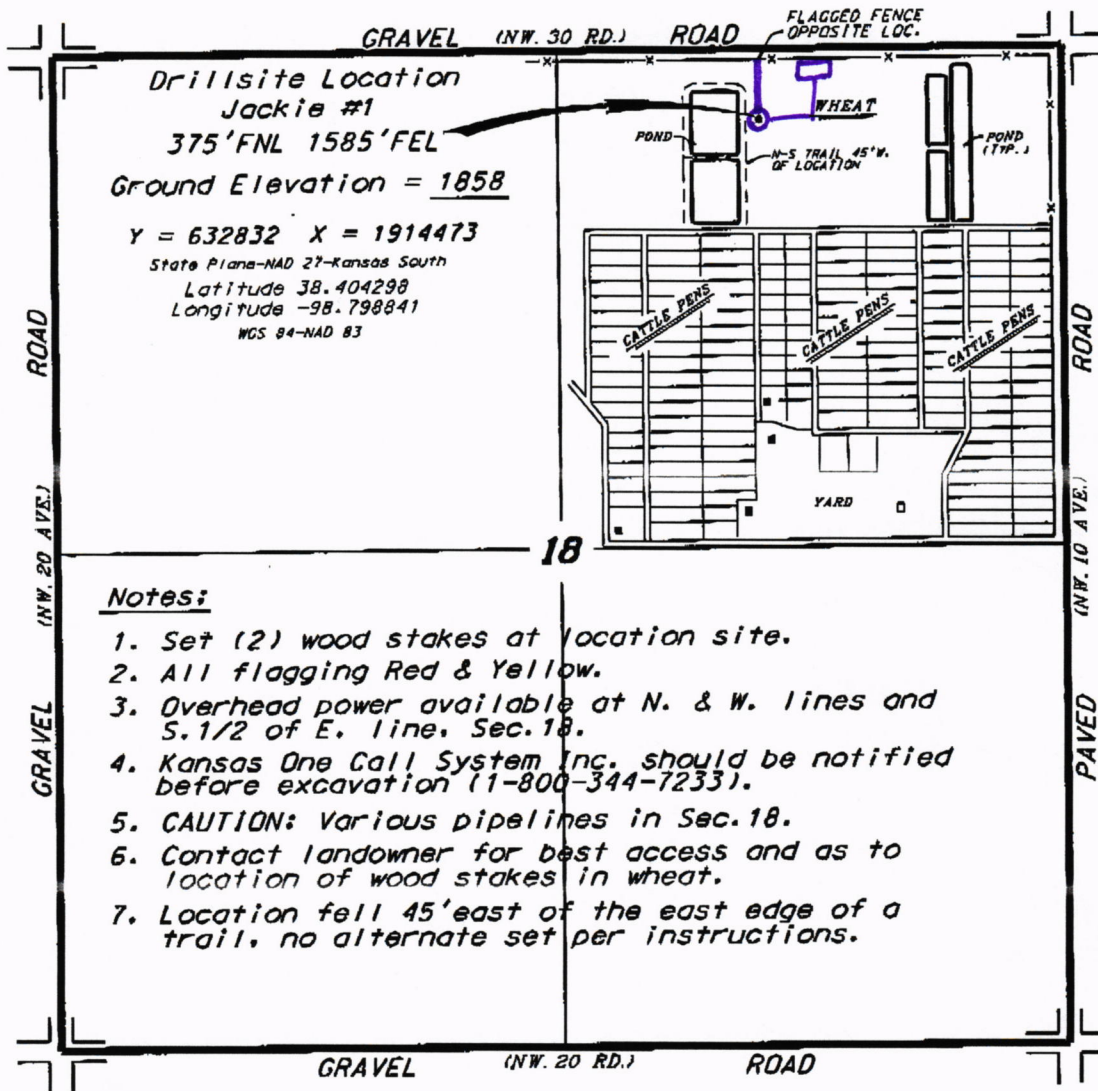 FLAGGED FENCE
OPPOSITE LOC.
GRAVEL (NW. 30 RD.) ROAD
Drillsite Location
Jackie #1
375'FNL 1585'FEL
Ground Elevation = 1858
Y = 632832 X = 1914473
State Plane-NAD 27-Kansas South
Latitude 38.404298
Longitude -98.798841
WGS 84-NAD 83
WHEAT
POND
N-S TRAIL 45'W.
OF LOCATION
POND
(TYP.)
CATTLE PENS
CATTLE PENS
CATTLE PENS
YARD
18
GRAVEL (NW. 20 AVE.) ROAD
PAVED (NW. 10 AVE.) ROAD
Notes:
1. Set (2) wood stakes at location site.
2. All flagging Red & Yellow.
3. Overhead power available at N. & W. lines and
S. 1/2 of E. line, Sec. 18.
4. Kansas One Call System Inc. should be notified
before excavation (1-800-344-7233).
5. CAUTION: Various pipelines in Sec. 18.
6. Contact landowner for best access and as to
location of wood stakes in wheat.
7. Location fell 45'east of the east edge of a
trail, no alternate set per instructions.
GRAVEL (NW. 20 RD.) ROAD